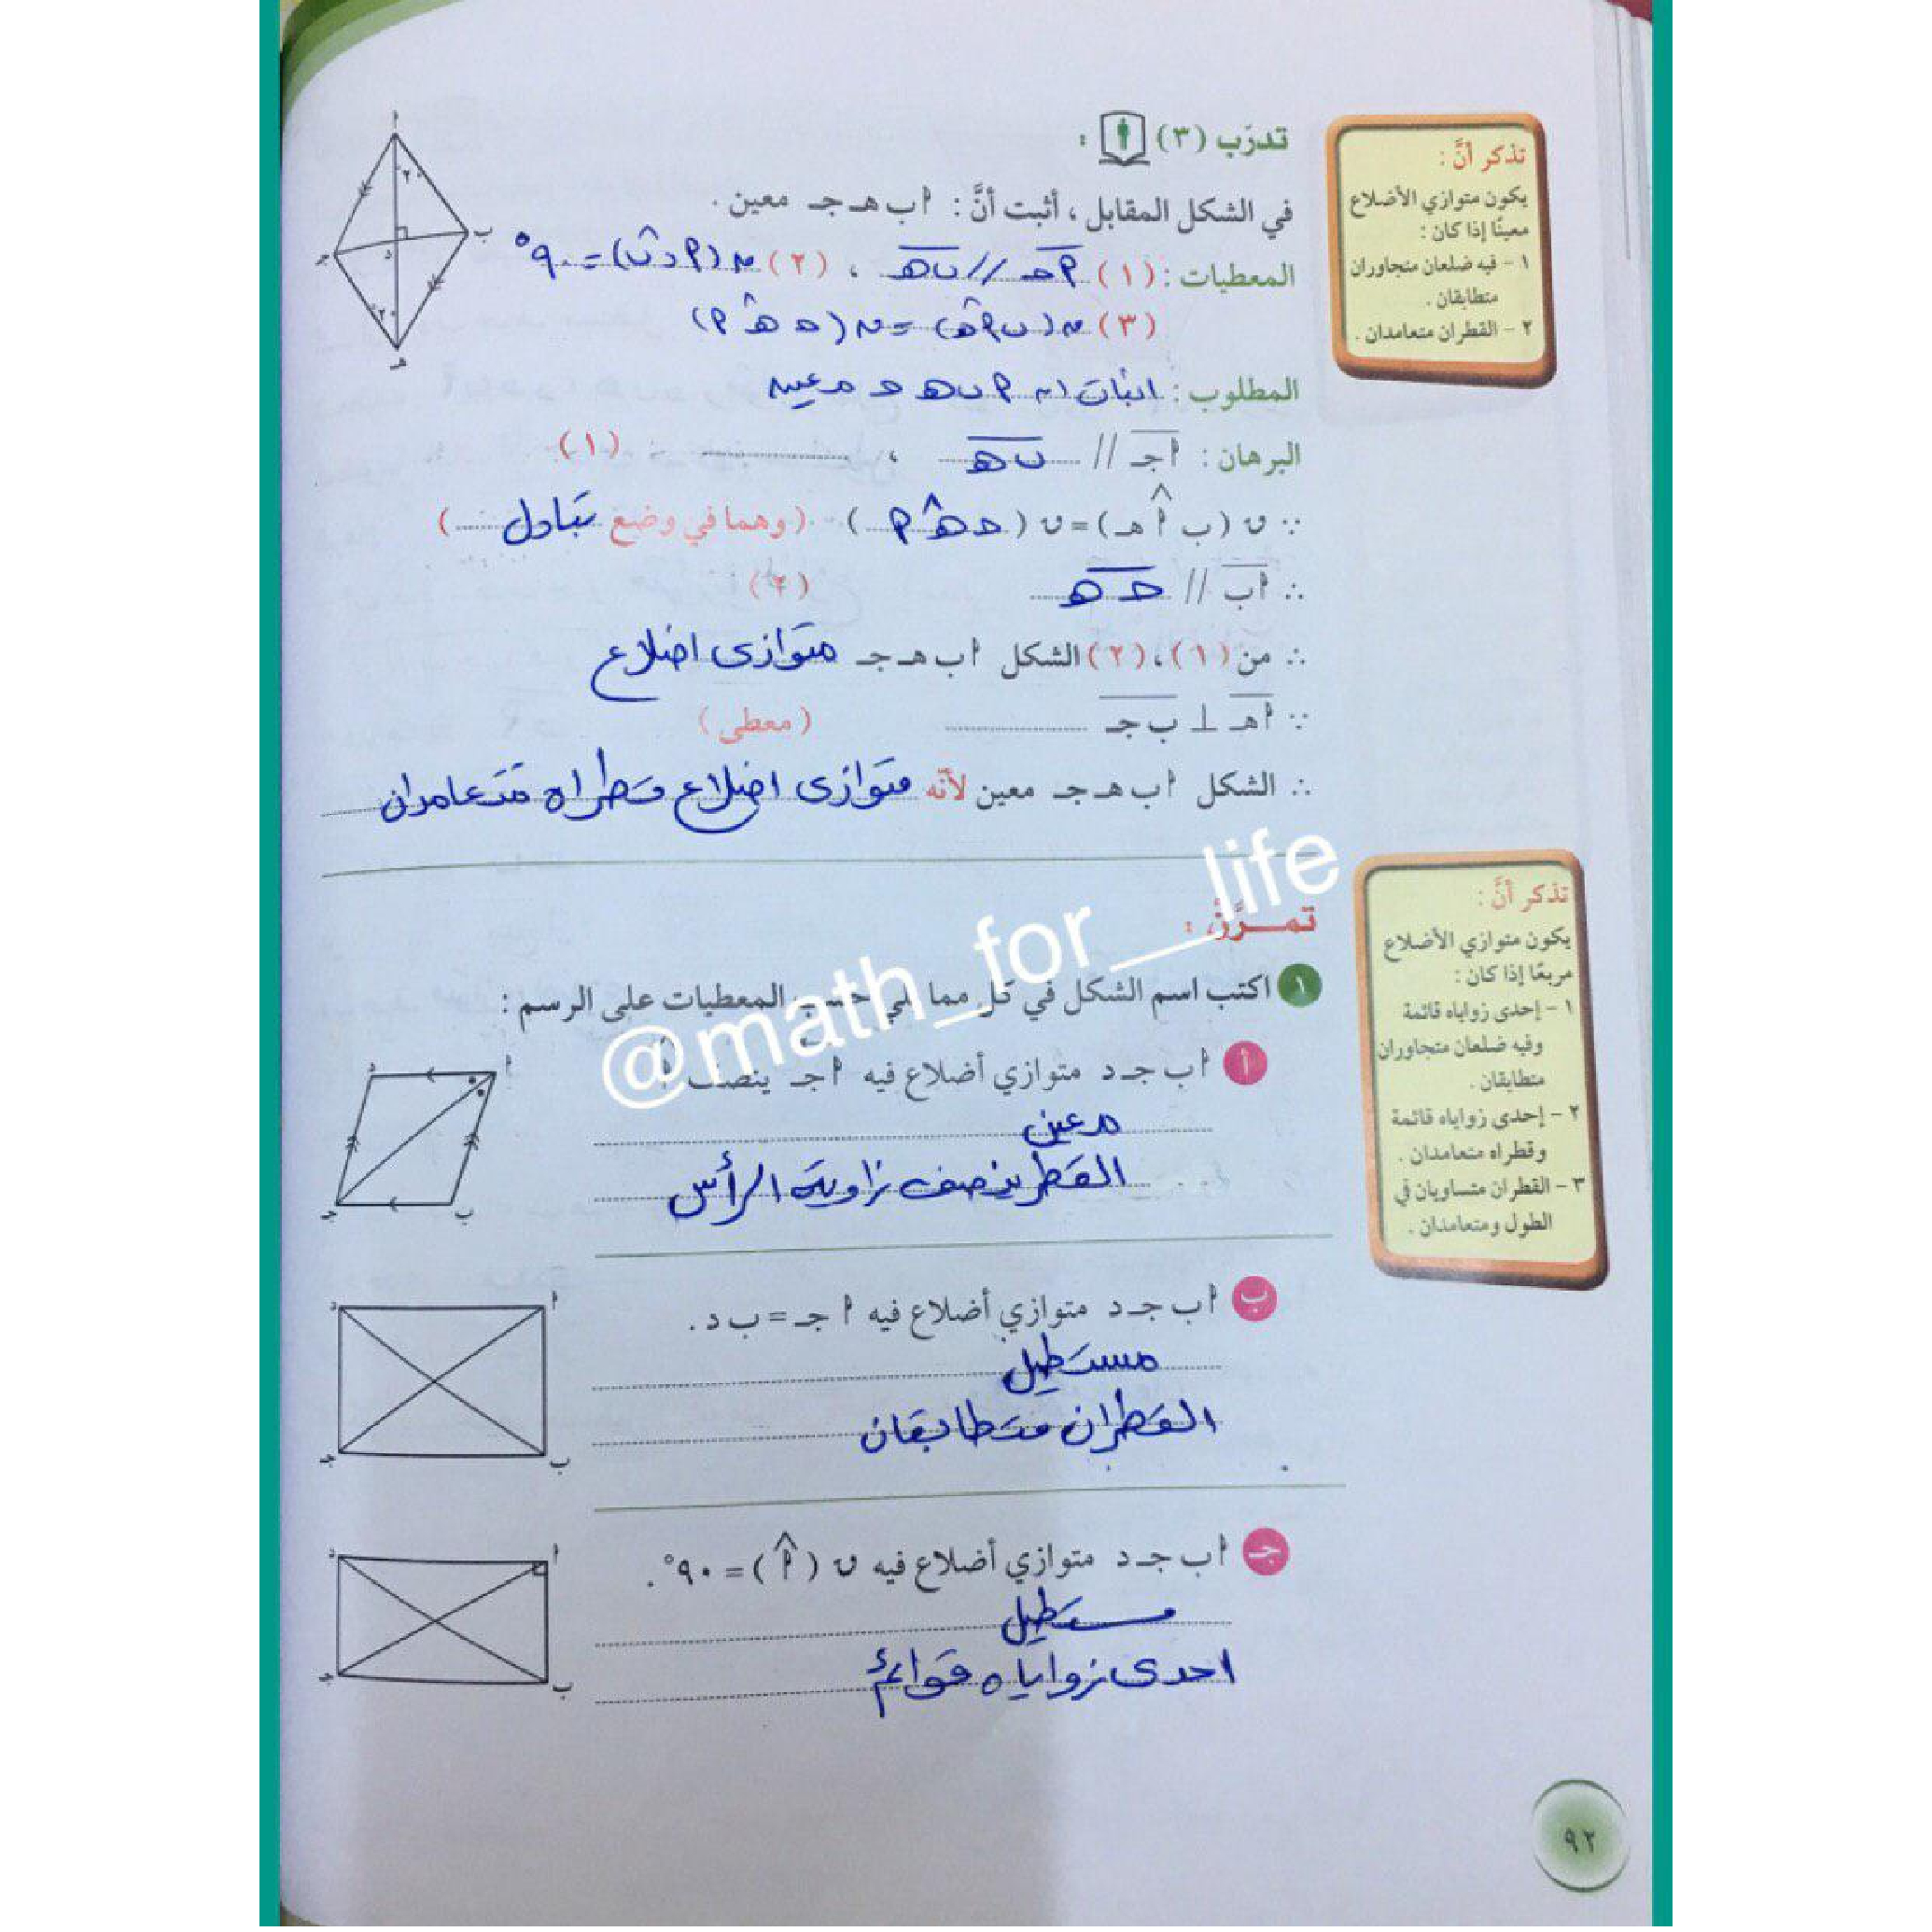 تدرّب (٣) :
في الشكل المقابل ، أثبت أنَّ : أ ب هـ جـ معين .
المعطيات : (١) أ حـ // ب هـ ، (٢) ن (أ د ب) = ٩٠°
(٣) ن (ب أ هـ) = ن (حـ هـ أ)
المطلوب : اثبات ان أ ب هـ حـ معين
البرهان : أ جـ // ب هـ ، (١)
∵ ن (ب أ هـ) = ن (حـ هـ أ) (وهما في وضع تبادل)
∴ أ ب // حـ هـ (٢)
∴ من (١) ، (٢) الشكل أ ب هـ جـ متوازى اضلاع
∵ أ هـ ⊥ ب جـ (معطى)
∴ الشكل أ ب هـ جـ معين لأنّه متوازى اضلاع قطراه متعامدان
تذكر أنَّ :
يكون متوازي الأضلاع
معينًا إذا كان :
١ - فيه ضلعان متجاوران
متطابقان .
٢ - القطران متعامدان .
أ
٢٠
ب
جـ
د
٢٠
هـ
تمـرَّن :
١ اكتب اسم الشكل في كل مما يلي حسب المعطيات على الرسم :
أ أ ب جـ د متوازي أضلاع فيه أ جـ ينصف أ
معين
القطر ينصف زاوية الرأس
د أ
جـ ب
ب أ ب جـ د متوازي أضلاع فيه أ جـ = ب د .
مستطيل
القطران متطابقان
د أ
جـ ب
جـ أ ب جـ د متوازي أضلاع فيه ن (أ) = ٩٠° .
مستطيل
احدى زواياه قوائم
د أ
جـ ب
تذكر أنَّ :
يكون متوازي الأضلاع
مربعًا إذا كان :
١ - إحدى زواياه قائمة
وفيه ضلعان متجاوران
متطابقان .
٢ - إحدى زواياه قائمة
وقطراه متعامدان .
٣ - القطران متساويان في
الطول ومتعامدان .
@math_for__life
٩٢